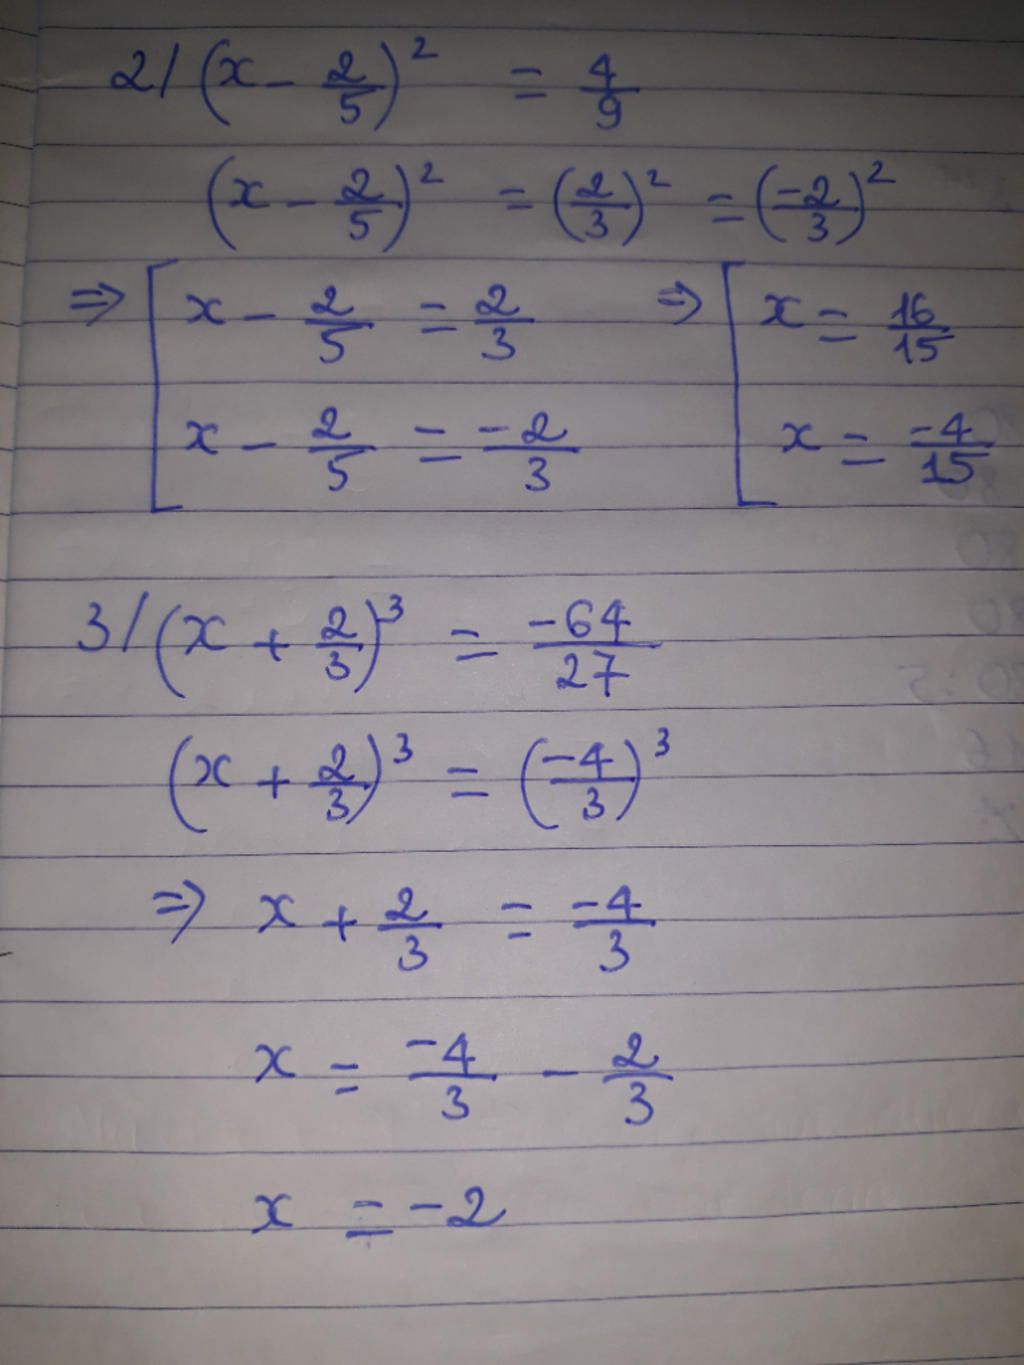 2/ (x - 2/5)² = 4/9
(x - 2/5)² = (2/3)² = (-2/3)²
⇒ [ x - 2/5 = 2/3 ⇒ [ x = 16/15
x - 2/5 = -2/3 x = -4/15
3/ (x + 2/3)³ = -64/27
(x + 2/3)³ = (-4/3)³
⇒ x + 2/3 = -4/3
x = -4/3 - 2/3
x = -2